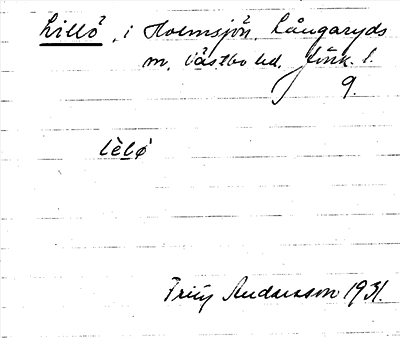 Lillö, i Holmsjön, Långaryds
m, Västbo hd. Jönk. l.
9.
lèlø
Fritz Andersson 1931.